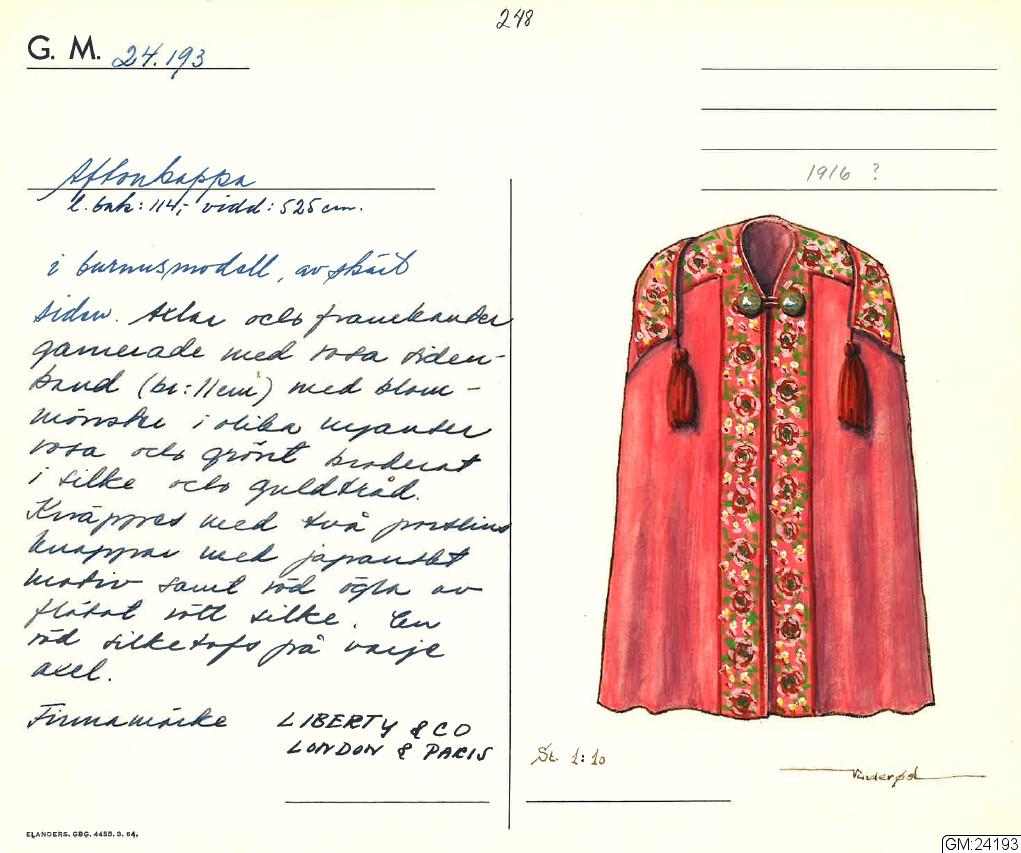 248
G. M. 24.193
1916 ?
Aftonkappa
l. bak: 114,- vidd: 525 cm.
i burnusmodell, av skärt
siden. Axlar och framkanter
garnerade med rosa siden-
band (br: 11 cm) med blom-
mönster i olika nyanser
rosa och grönt broderat
i silke och guldtråd.
Knäppes med två porslins
knappar med japanskt
motiv samt röd ögla av
flätat rött silke. En
röd silketofs på varje
axel.
Firmamärke LIBERTY & CO
LONDON & PARIS
St. 1:10
ELANDERS. GBG. 4455. 3. 64.
GM:24193